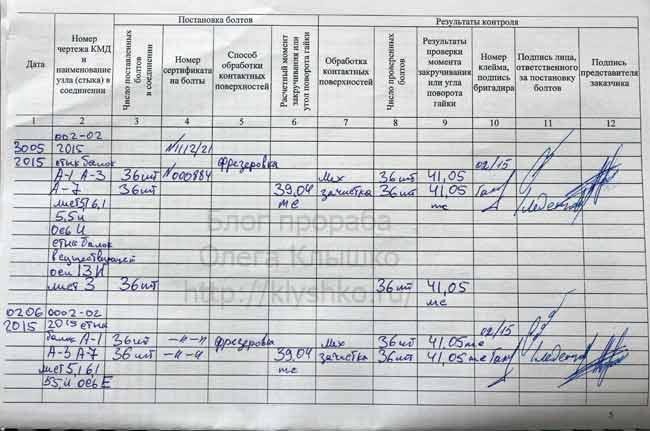 Постановка болтов
Результаты контроля
Дата
Номер чертежа КМД и наименование узла (стыка) в соединении
Число поставленных болтов в соединении
Номер сертификата на болты
Способ обработки контактных поверхностей
Расчетный момент закручивания или угол поворота гайки
Обработка контактных поверхностей
Число проверенных болтов
Результаты проверки момента закручивания или угла поворота гайки
Номер клейма, подпись бригадира
Подпись лица, ответственного за постановку болтов
Подпись представителя заказчика
1 2 3 4 5 6 7 8 9 10 11 12
002-02
3005 2015 №112/21
2015 стык балок фрезеровка 02/15
А-1 А-3 36шт №000884 Мех 36шт 41,05
А-7 36шт 39,04 зачистка 36шт 41,05
лист 5,1 6,1 тс тс
5,5 и
ось И
стык балок
оси 13 И
лист 3 36шт 36шт 41,05
тс
0206 0002-02
2015 2015 стык 02/15
балок А-1 36шт -〃-〃 фрезеровка Мех 36шт 41,05тс
А-3 А7 36шт -〃-〃 39,04 зачистка 36шт 41,05тс
лист 5,1 6,1 тс
5.5,и ось Е
Блог прораба
Олега Клышко
http://klyshko.ru/
5